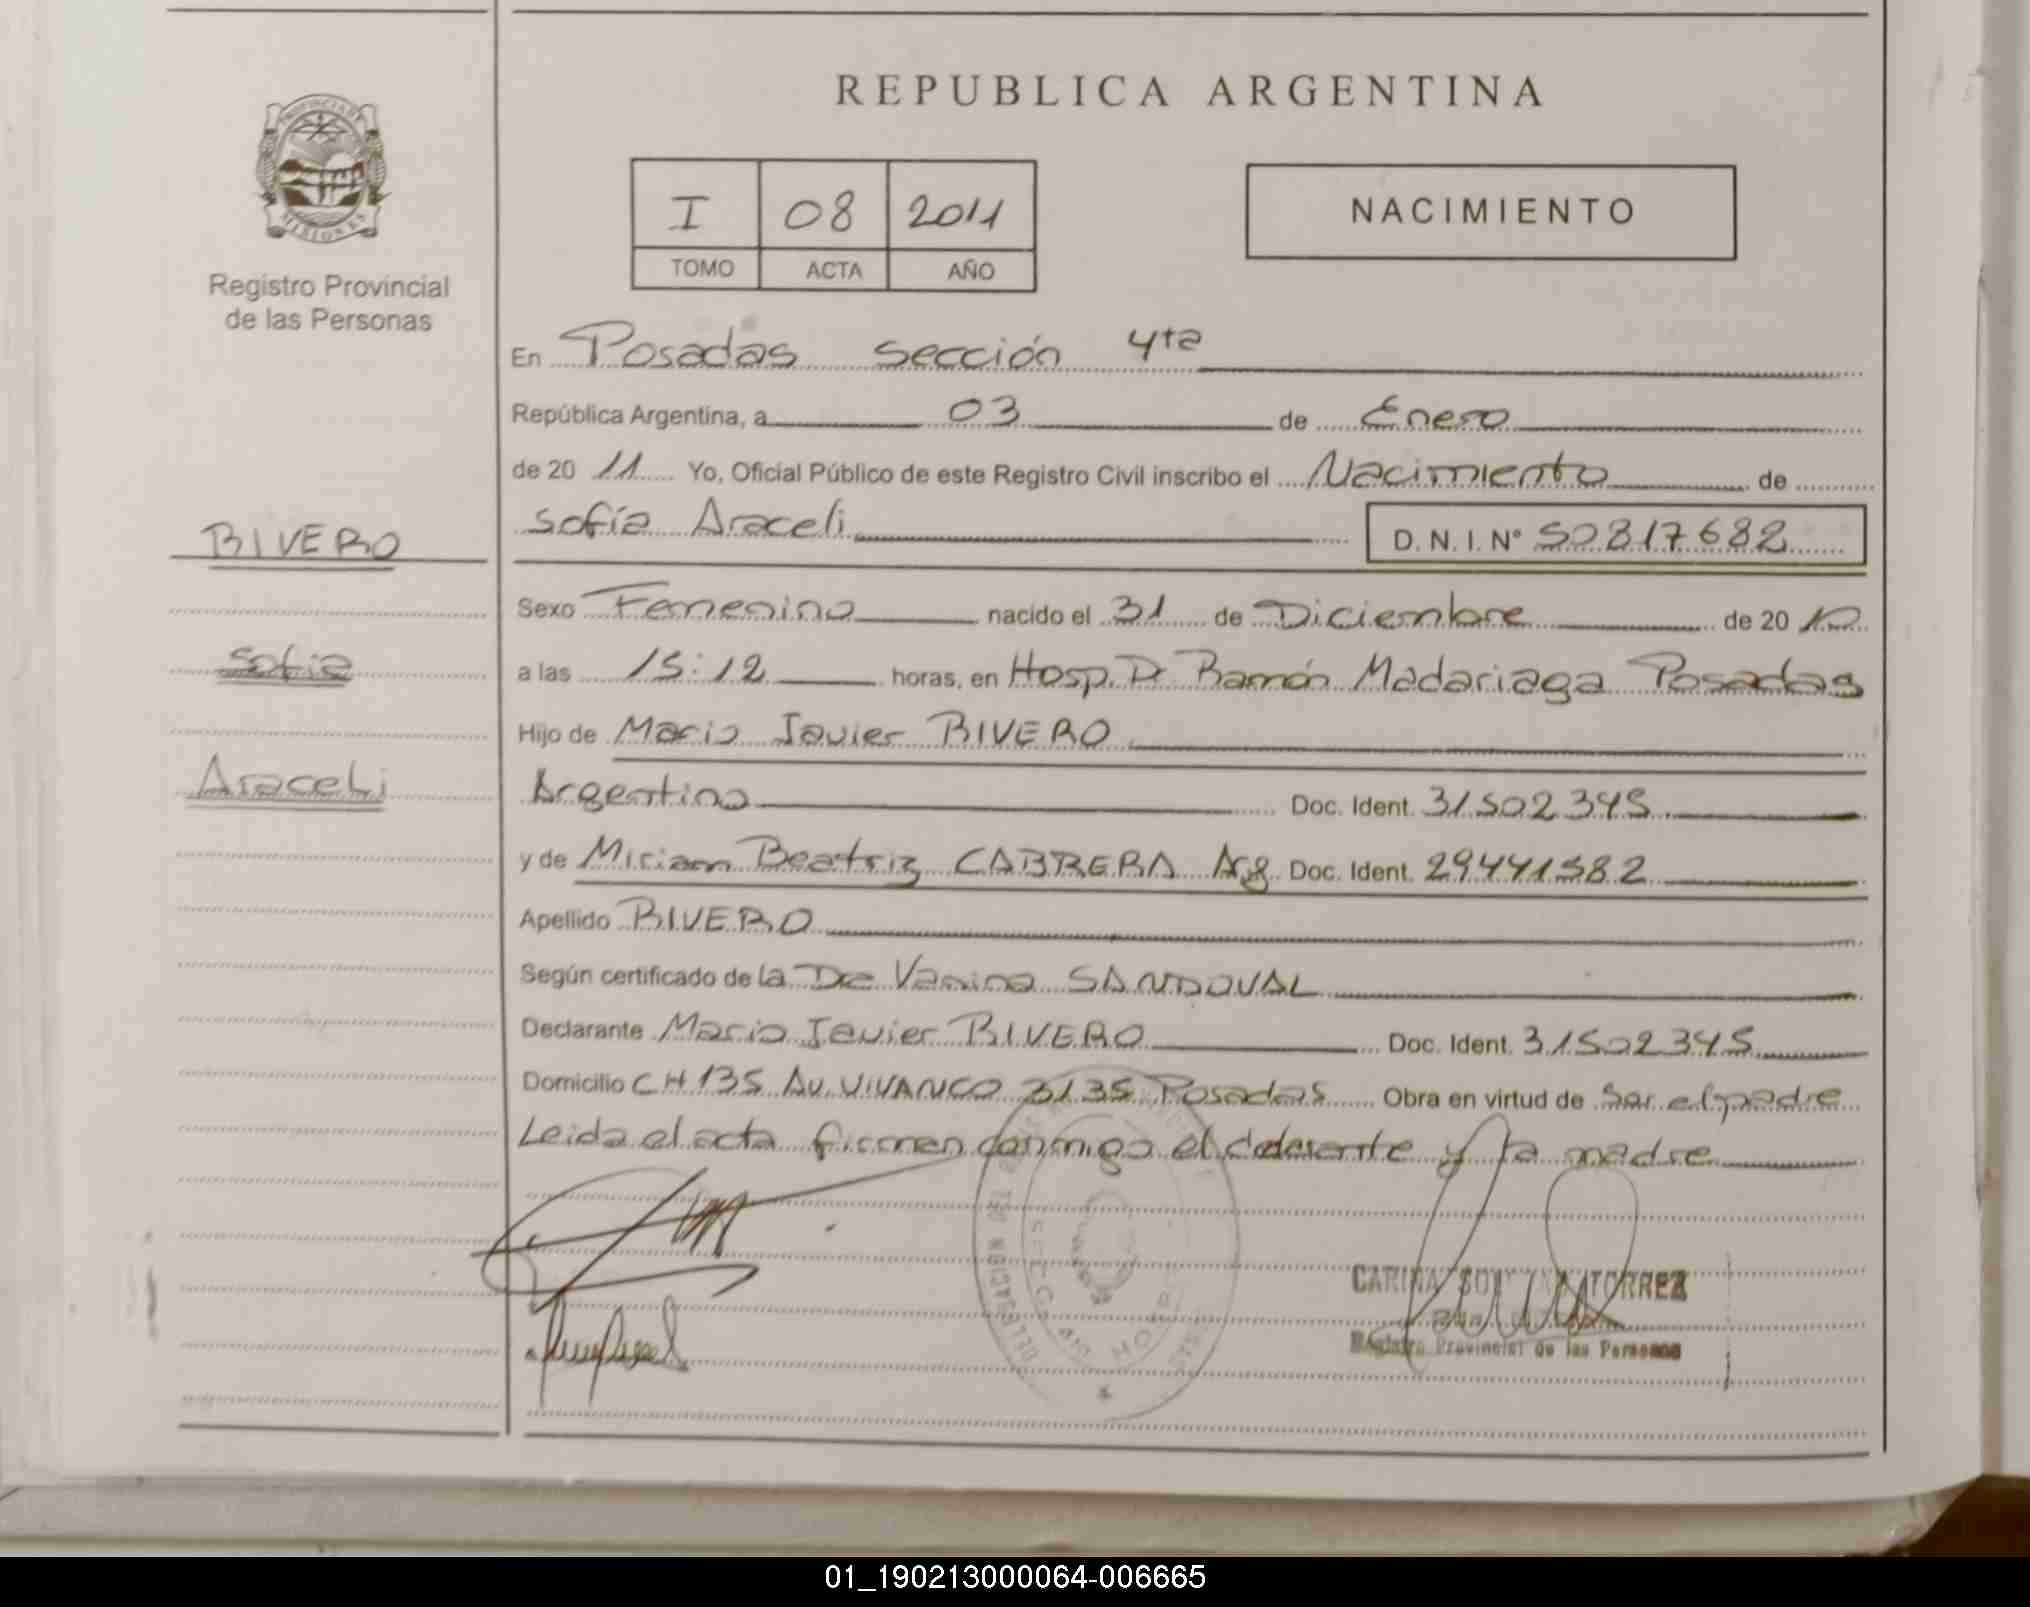 REPUBLICA ARGENTINA
PROVINCIA DE
MISIONES
Registro Provincial
de las Personas
I 08 2011
TOMO ACTA AÑO
NACIMIENTO
En Posadas sección 4ta
República Argentina, a 03 de Enero
de 20 11 Yo, Oficial Público de este Registro Civil inscribo el Nacimiento de
Sofía Araceli D. N. I. N° 50817682
RIVERO
Sofía
Araceli
Sexo Femenino nacido el 31 de Diciembre de 20 10
a las 15:12 horas, en Hosp. Dr Ramón Madariaga Posadas
Hijo de Mario Javier RIVERO
Argentino Doc. Ident. 31502345
y de Miriam Beatriz CABRERA Arg Doc. Ident. 29441582
Apellido RIVERO
Según certificado de la Dra Vanina SANDOVAL
Declarante Mario Javier RIVERO Doc. Ident. 31502345
Domicilio CH 135 AV. VIVANCO 3135 Posadas Obra en virtud de Ser el padre
Leida el acta firman conmigo el declarante y la madre
DELEGACION DEL
SECCION
CARINA TORREZ
Registro Provincial de las Personas
01_190213000064-006665